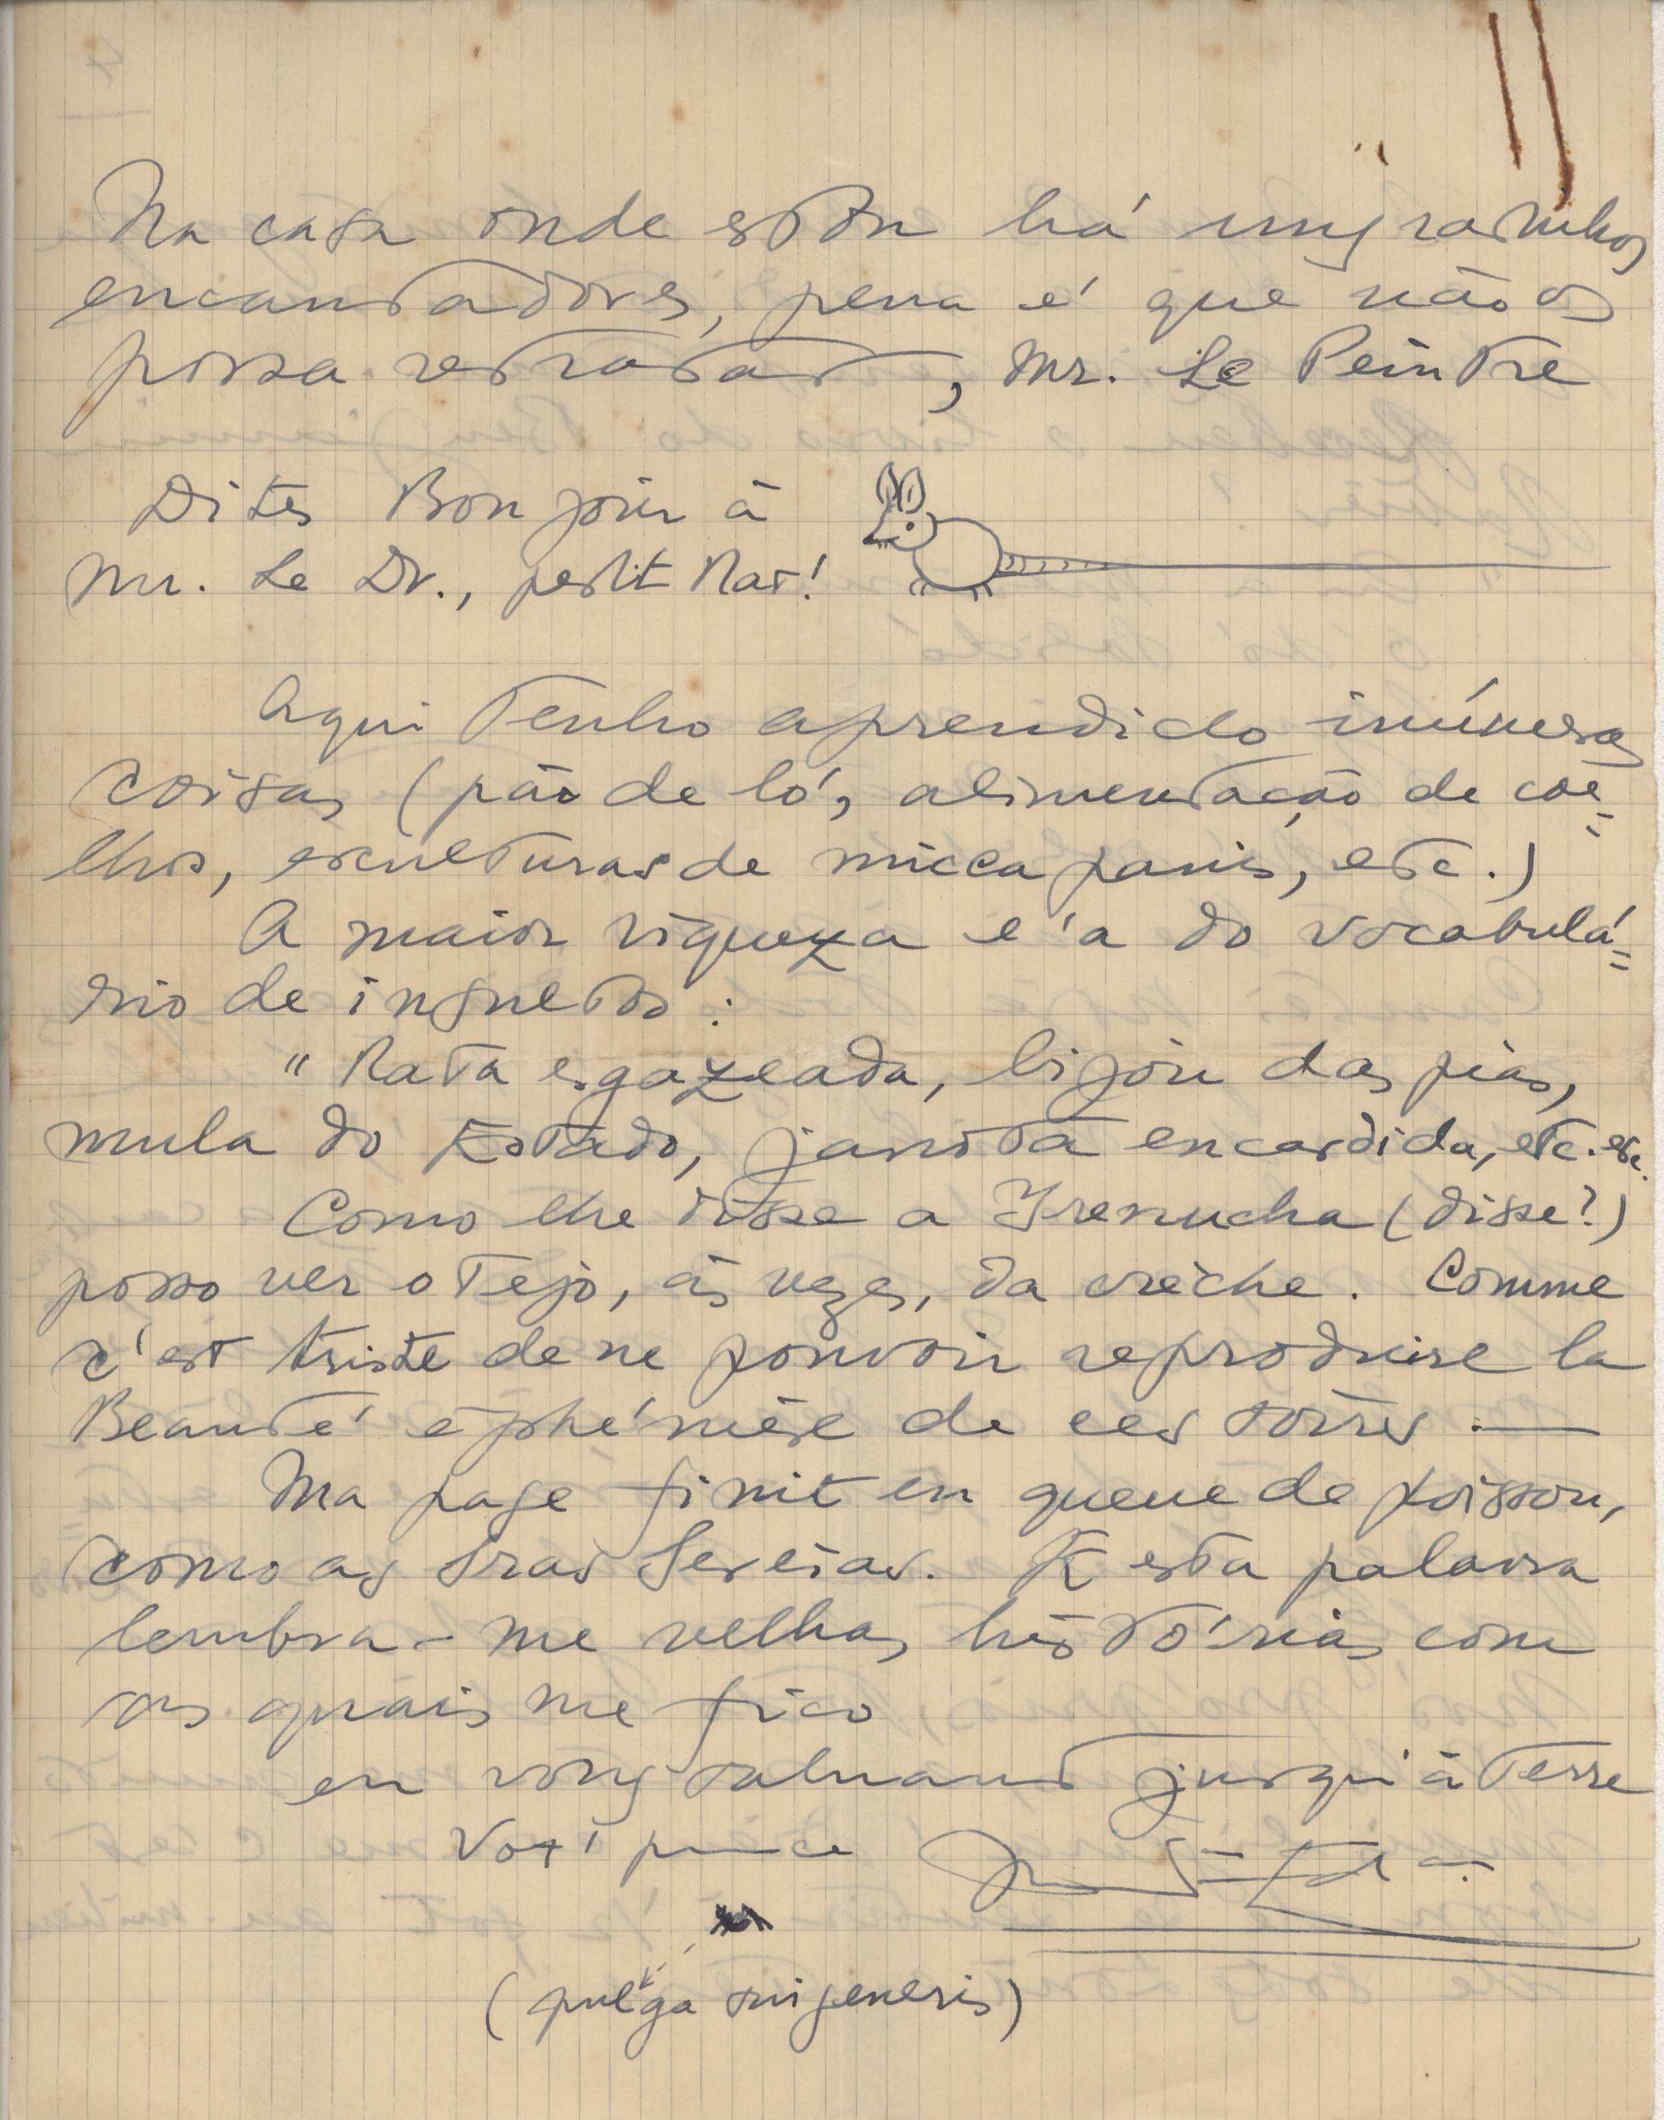 Na casa onde estou há uns ratinhos
encantadores, pena é que não os
possa retratar, Mr. Le Peintre
Dites Bonjour à
Mr. Le Dr., petit Rat!
Aqui tenho aprendido inúmeras
coisas (pão de ló, alimentação de coe=
lhos, esculturas de micca panis, etc.)
A maior riqueza é a do vocabulá=
rio de insultos:
"Rata esgazeada, bijou das pias,
mula do Estado, janota encardida, etc. etc.
Como lhe disse a Irenucha (disse?)
posso ver o Tejo, às vezes, da crèche. Comme
c'est triste de ne pouvoir reproduire la
Beauté éphémère de ces soirs. —
Ma page finit en queue de poisson,
como as Sras Sereias. E esta palavra
lembra-me velhas histórias com
as quais me fico
en vous saluant jusqu'à terre
Vot' puce
(pulga sui generis)